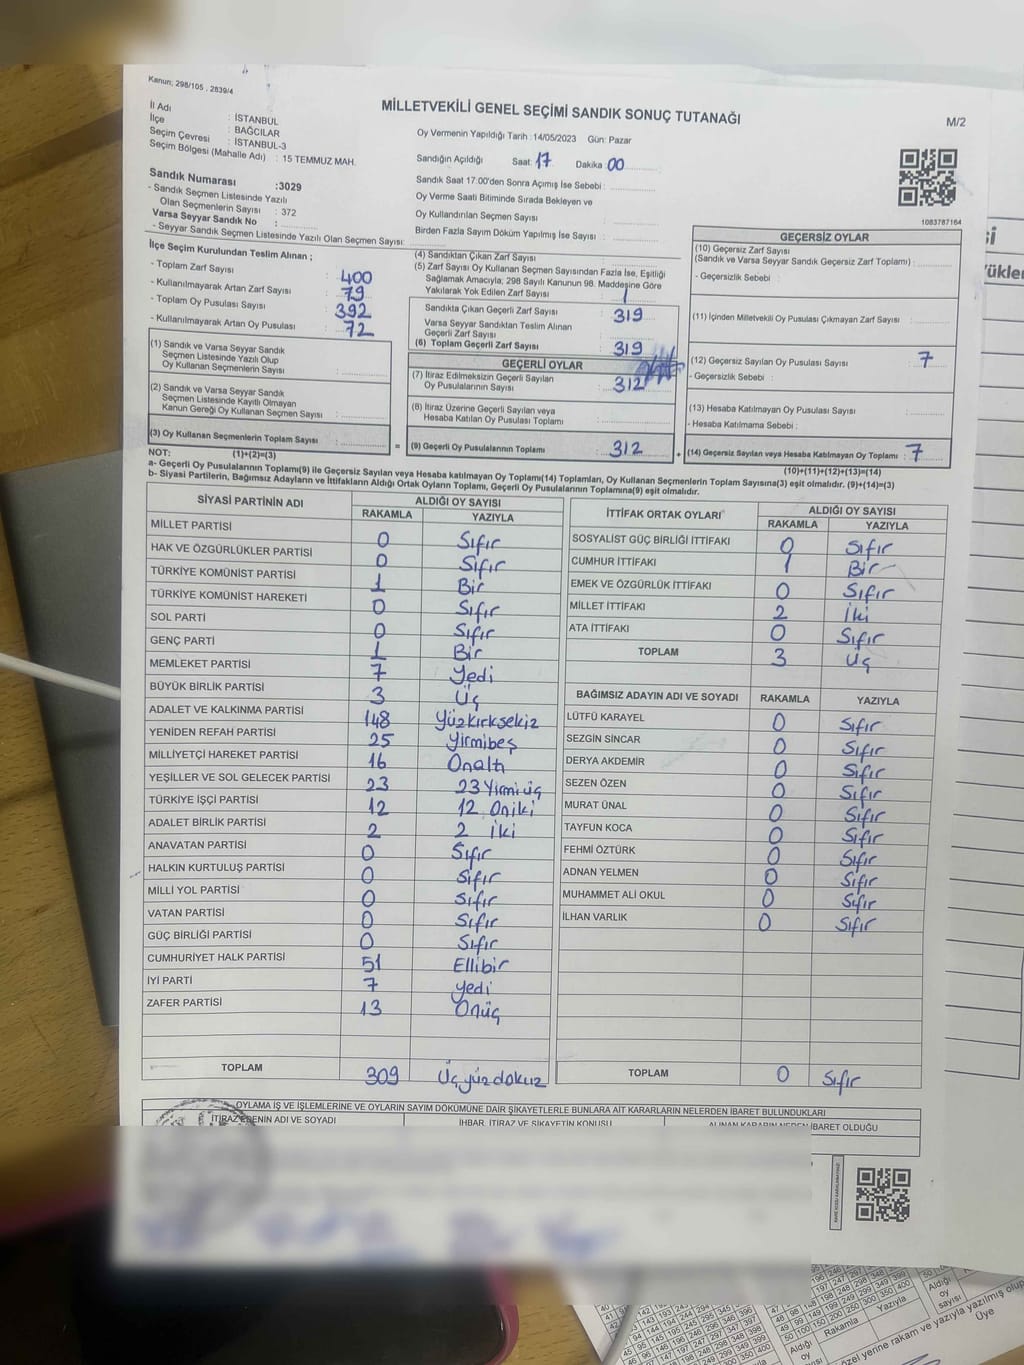 Kanun; 298/105 , 2839/4
MİLLETVEKİLİ GENEL SEÇİMİ SANDIK SONUÇ TUTANAĞI
M/2
İl Adı : İSTANBUL
İlçe : BAĞCILAR
Seçim Çevresi : İSTANBUL-3
Seçim Bölgesi (Mahalle Adı) : 15 TEMMUZ MAH.
Sandık Numarası :3029
- Sandık Seçmen Listesinde Yazılı
Olan Seçmenlerin Sayısı : 372
Varsa Seyyar Sandık No :
- Seyyar Sandık Seçmen Listesinde Yazılı Olan Seçmen Sayısı:
Oy Vermenin Yapıldığı Tarih : 14/05/2023 Gün: Pazar
Sandığın Açıldığı Saat: 17 Dakika 00
Sandık Saat 17:00'den Sonra Açılmış İse Sebebi :
Oy Verme Saati Bitiminde Sırada Bekleyen ve
Oy Kullandırılan Seçmen Sayısı :
Birden Fazla Sayım Döküm Yapılmış İse Sayısı :
1083787164
İlçe Seçim Kurulundan Teslim Alınan ;
- Toplam Zarf Sayısı : 400
- Kullanılmayarak Artan Zarf Sayısı : 79
- Toplam Oy Pusulası Sayısı : 392
- Kullanılmayarak Artan Oy Pusulası : 72
(1) Sandık ve Varsa Seyyar Sandık
Seçmen Listesinde Yazılı Olup
Oy Kullanan Seçmenlerin Sayısı :
(2) Sandık ve Varsa Seyyar Sandık
Seçmen Listesinde Kayıtlı Olmayan
Kanun Gereği Oy Kullanan Seçmen Sayısı :
(3) Oy Kullanan Seçmenlerin Toplam Sayısı :
(4) Sandıktan Çıkan Zarf Sayısı :
(5) Zarf Sayısı Oy Kullanan Seçmen Sayısından Fazla İse, Eşitliği
Sağlamak Amacıyla; 298 Sayılı Kanunun 98. Maddesine Göre
Yakılarak Yok Edilen Zarf Sayısı : 1
Sandıkta Çıkan Geçerli Zarf Sayısı : 319
Varsa Seyyar Sandıktan Teslim Alınan
Geçerli Zarf Sayısı :
(6) Toplam Geçerli Zarf Sayısı : 319
GEÇERLİ OYLAR
(7) İtiraz Edilmeksizin Geçerli Sayılan
Oy Pusulalarının Sayısı : 312
(8) İtiraz Üzerine Geçerli Sayılan veya
Hesaba Katılan Oy Pusulası Toplamı :
= (9) Geçerli Oy Pusulalarının Toplamı : 312 +
GEÇERSİZ OYLAR
(10) Geçersiz Zarf Sayısı
(Sandık ve Varsa Seyyar Sandık Geçersiz Zarf Toplamı) :
- Geçersizlik Sebebi :
(11) İçinden Milletvekili Oy Pusulası Çıkmayan Zarf Sayısı :
(12) Geçersiz Sayılan Oy Pusulası Sayısı : 7
- Geçersizlik Sebebi :
(13) Hesaba Katılmayan Oy Pusulası Sayısı :
- Hesaba Katılmama Sebebi :
(14) Geçersiz Sayılan veya Hesaba Katılmayan Oy Toplamı : 7
NOT: (1)+(2)=(3)
(10)+(11)+(12)+(13)=(14)
a- Geçerli Oy Pusulalarının Toplamı(9) ile Geçersiz Sayılan veya Hesaba katılmayan Oy Toplamı(14) Toplamları, Oy Kullanan Seçmenlerin Toplam Sayısına(3) eşit olmalıdır. (9)+(14)=(3)
b- Siyasi Partilerin, Bağımsız Adayların ve İttifakların Aldığı Ortak Oyların Toplamı, Geçerli Oy Pusulalarının Toplamına(9) eşit olmalıdır.
SİYASİ PARTİNİN ADI ALDIĞI OY SAYISI
RAKAMLA YAZIYLA
MİLLET PARTİSİ 0 Sıfır
HAK VE ÖZGÜRLÜKLER PARTİSİ 0 Sıfır
TÜRKİYE KOMÜNİST PARTİSİ 1 Bir
TÜRKİYE KOMÜNİST HAREKETİ 0 Sıfır
SOL PARTİ 0 Sıfır
GENÇ PARTİ 1 Bir
MEMLEKET PARTİSİ 7 Yedi
BÜYÜK BİRLİK PARTİSİ 3 Üç
ADALET VE KALKINMA PARTİSİ 148 Yüzkırksekiz
YENİDEN REFAH PARTİSİ 25 Yirmibeş
MİLLİYETÇİ HAREKET PARTİSİ 16 Onaltı
YEŞİLLER VE SOL GELECEK PARTİSİ 23 23 Yirmiüç
TÜRKİYE İŞÇİ PARTİSİ 12 12 Oniki
ADALET BİRLİK PARTİSİ 2 2 İki
ANAVATAN PARTİSİ 0 Sıfır
HALKIN KURTULUŞ PARTİSİ 0 Sıfır
MİLLİ YOL PARTİSİ 0 Sıfır
VATAN PARTİSİ 0 Sıfır
GÜÇ BİRLİĞİ PARTİSİ 0 Sıfır
CUMHURİYET HALK PARTİSİ 51 Ellibir
İYİ PARTİ 7 Yedi
ZAFER PARTİSİ 13 Onüç
TOPLAM 309 Üçyüzdokuz
İTTİFAK ORTAK OYLARI ALDIĞI OY SAYISI
RAKAMLA YAZIYLA
SOSYALİST GÜÇ BİRLİĞİ İTTİFAKI 0 Sıfır
CUMHUR İTTİFAKI 1 Bir
EMEK VE ÖZGÜRLÜK İTTİFAKI 0 Sıfır
MİLLET İTTİFAKI 2 İki
ATA İTTİFAKI 0 Sıfır
TOPLAM 3 Üç
BAĞIMSIZ ADAYIN ADI VE SOYADI RAKAMLA YAZIYLA
LÜTFÜ KARAYEL 0 Sıfır
SEZGİN SİNCAR 0 Sıfır
DERYA AKDEMİR 0 Sıfır
SEZEN ÖZEN 0 Sıfır
MURAT ÜNAL 0 Sıfır
TAYFUN KOCA 0 Sıfır
FEHMİ ÖZTÜRK 0 Sıfır
ADNAN YELMEN 0 Sıfır
MUHAMMET ALİ OKUL 0 Sıfır
İLHAN VARLIK 0 Sıfır
TOPLAM 0 Sıfır
OYLAMA İŞ VE İŞLEMLERİNE VE OYLARIN SAYIM DÖKÜMÜNE DAİR ŞİKAYETLERLE BUNLARA AİT KARARLARIN NELERDEN İBARET BULUNDUKLARI
İTİRAZ EDENİN ADI VE SOYADI İHBAR, İTİRAZ VE ŞİKAYETİN KONUSU ALINAN KARARIN NEDEN İBARET OLDUĞU
Aldığı
oy
sayısı
Rakamla Yazıyla
özel yerine rakam ve yazıyla yazılmış olup
Üye